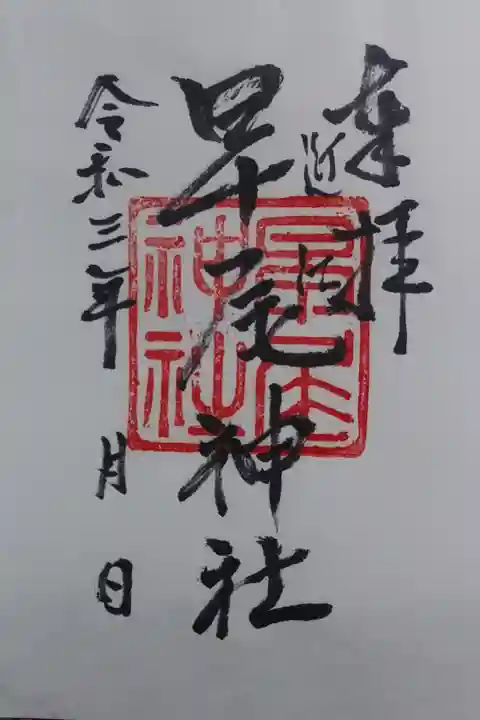 奉拝
近江
早尾神社
令和三年 月 日
早尾
神社